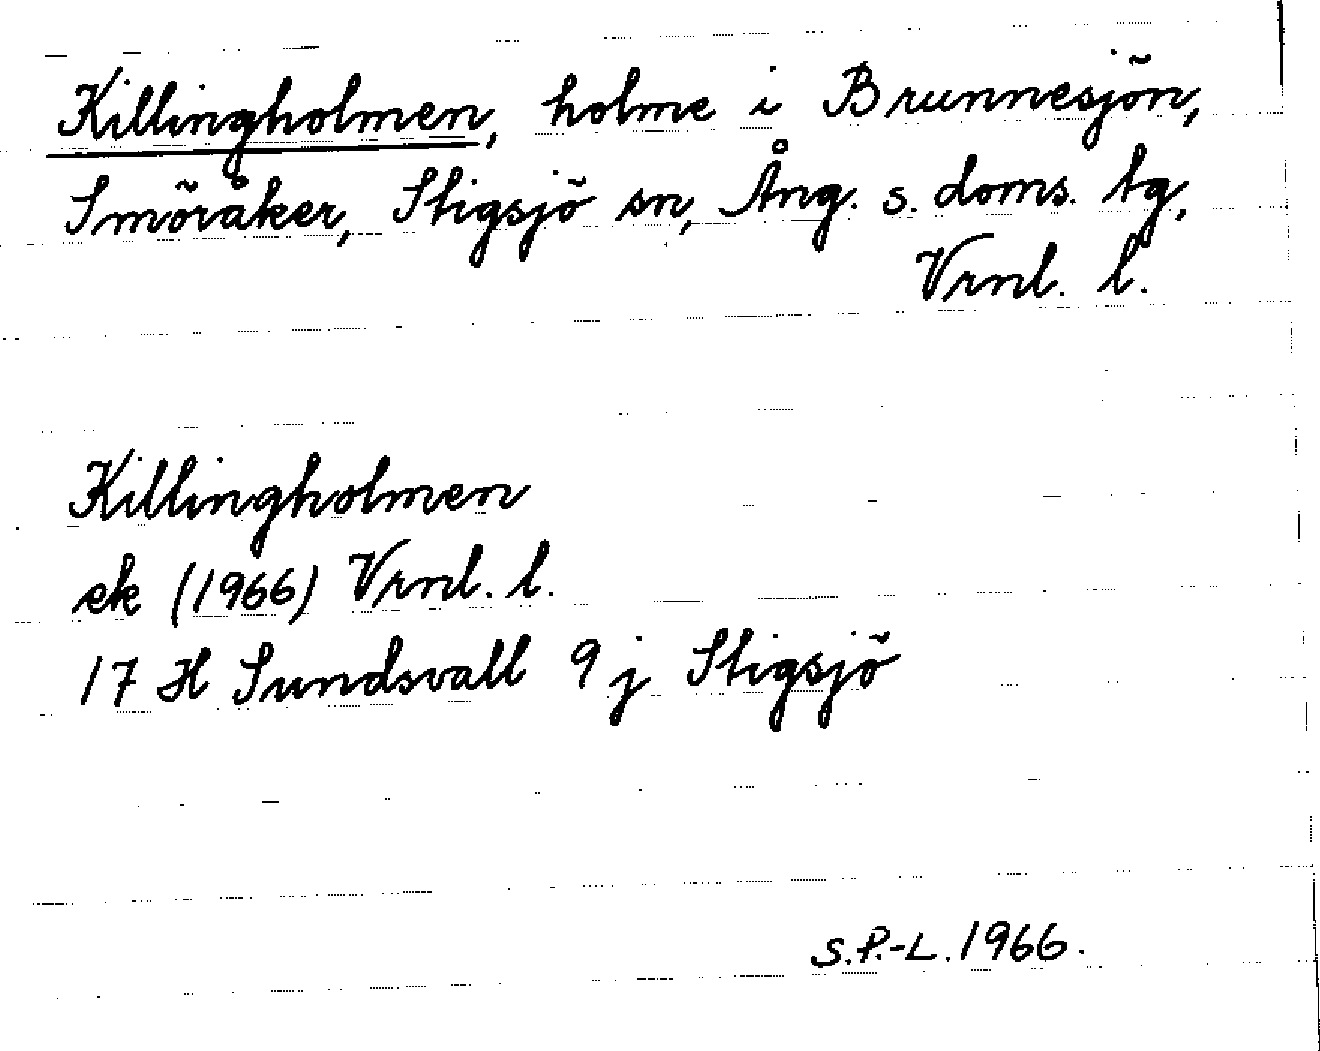 Killingholmen, holme i Brunnesjön,
Smöråker, Stigsjö sn, Ång. s. doms. tg,
Vrnl. l.
Killingholmen
ek (1966) Vrnl. l.
17 H Sundsvall 9 j Stigsjö
S.P.-L. 1966.